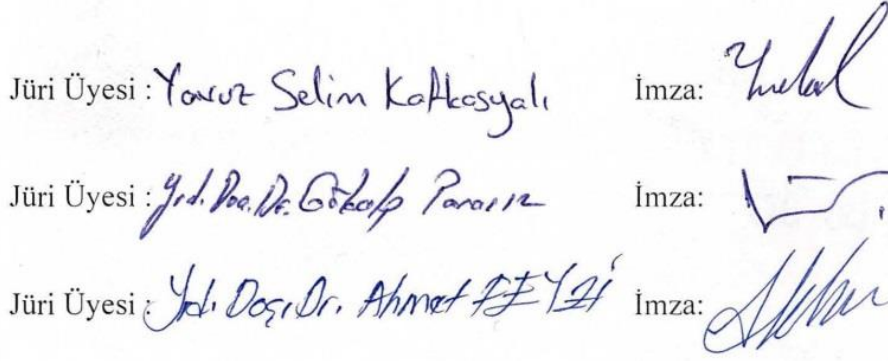 Jüri Üyesi : Yavuz Selim Kafkasyalı İmza:
Jüri Üyesi : Yrd. Doç. Dr. Gökalp İmza:
Jüri Üyesi : Yrd. Doç. Dr. Ahmet FEYZİ İmza: